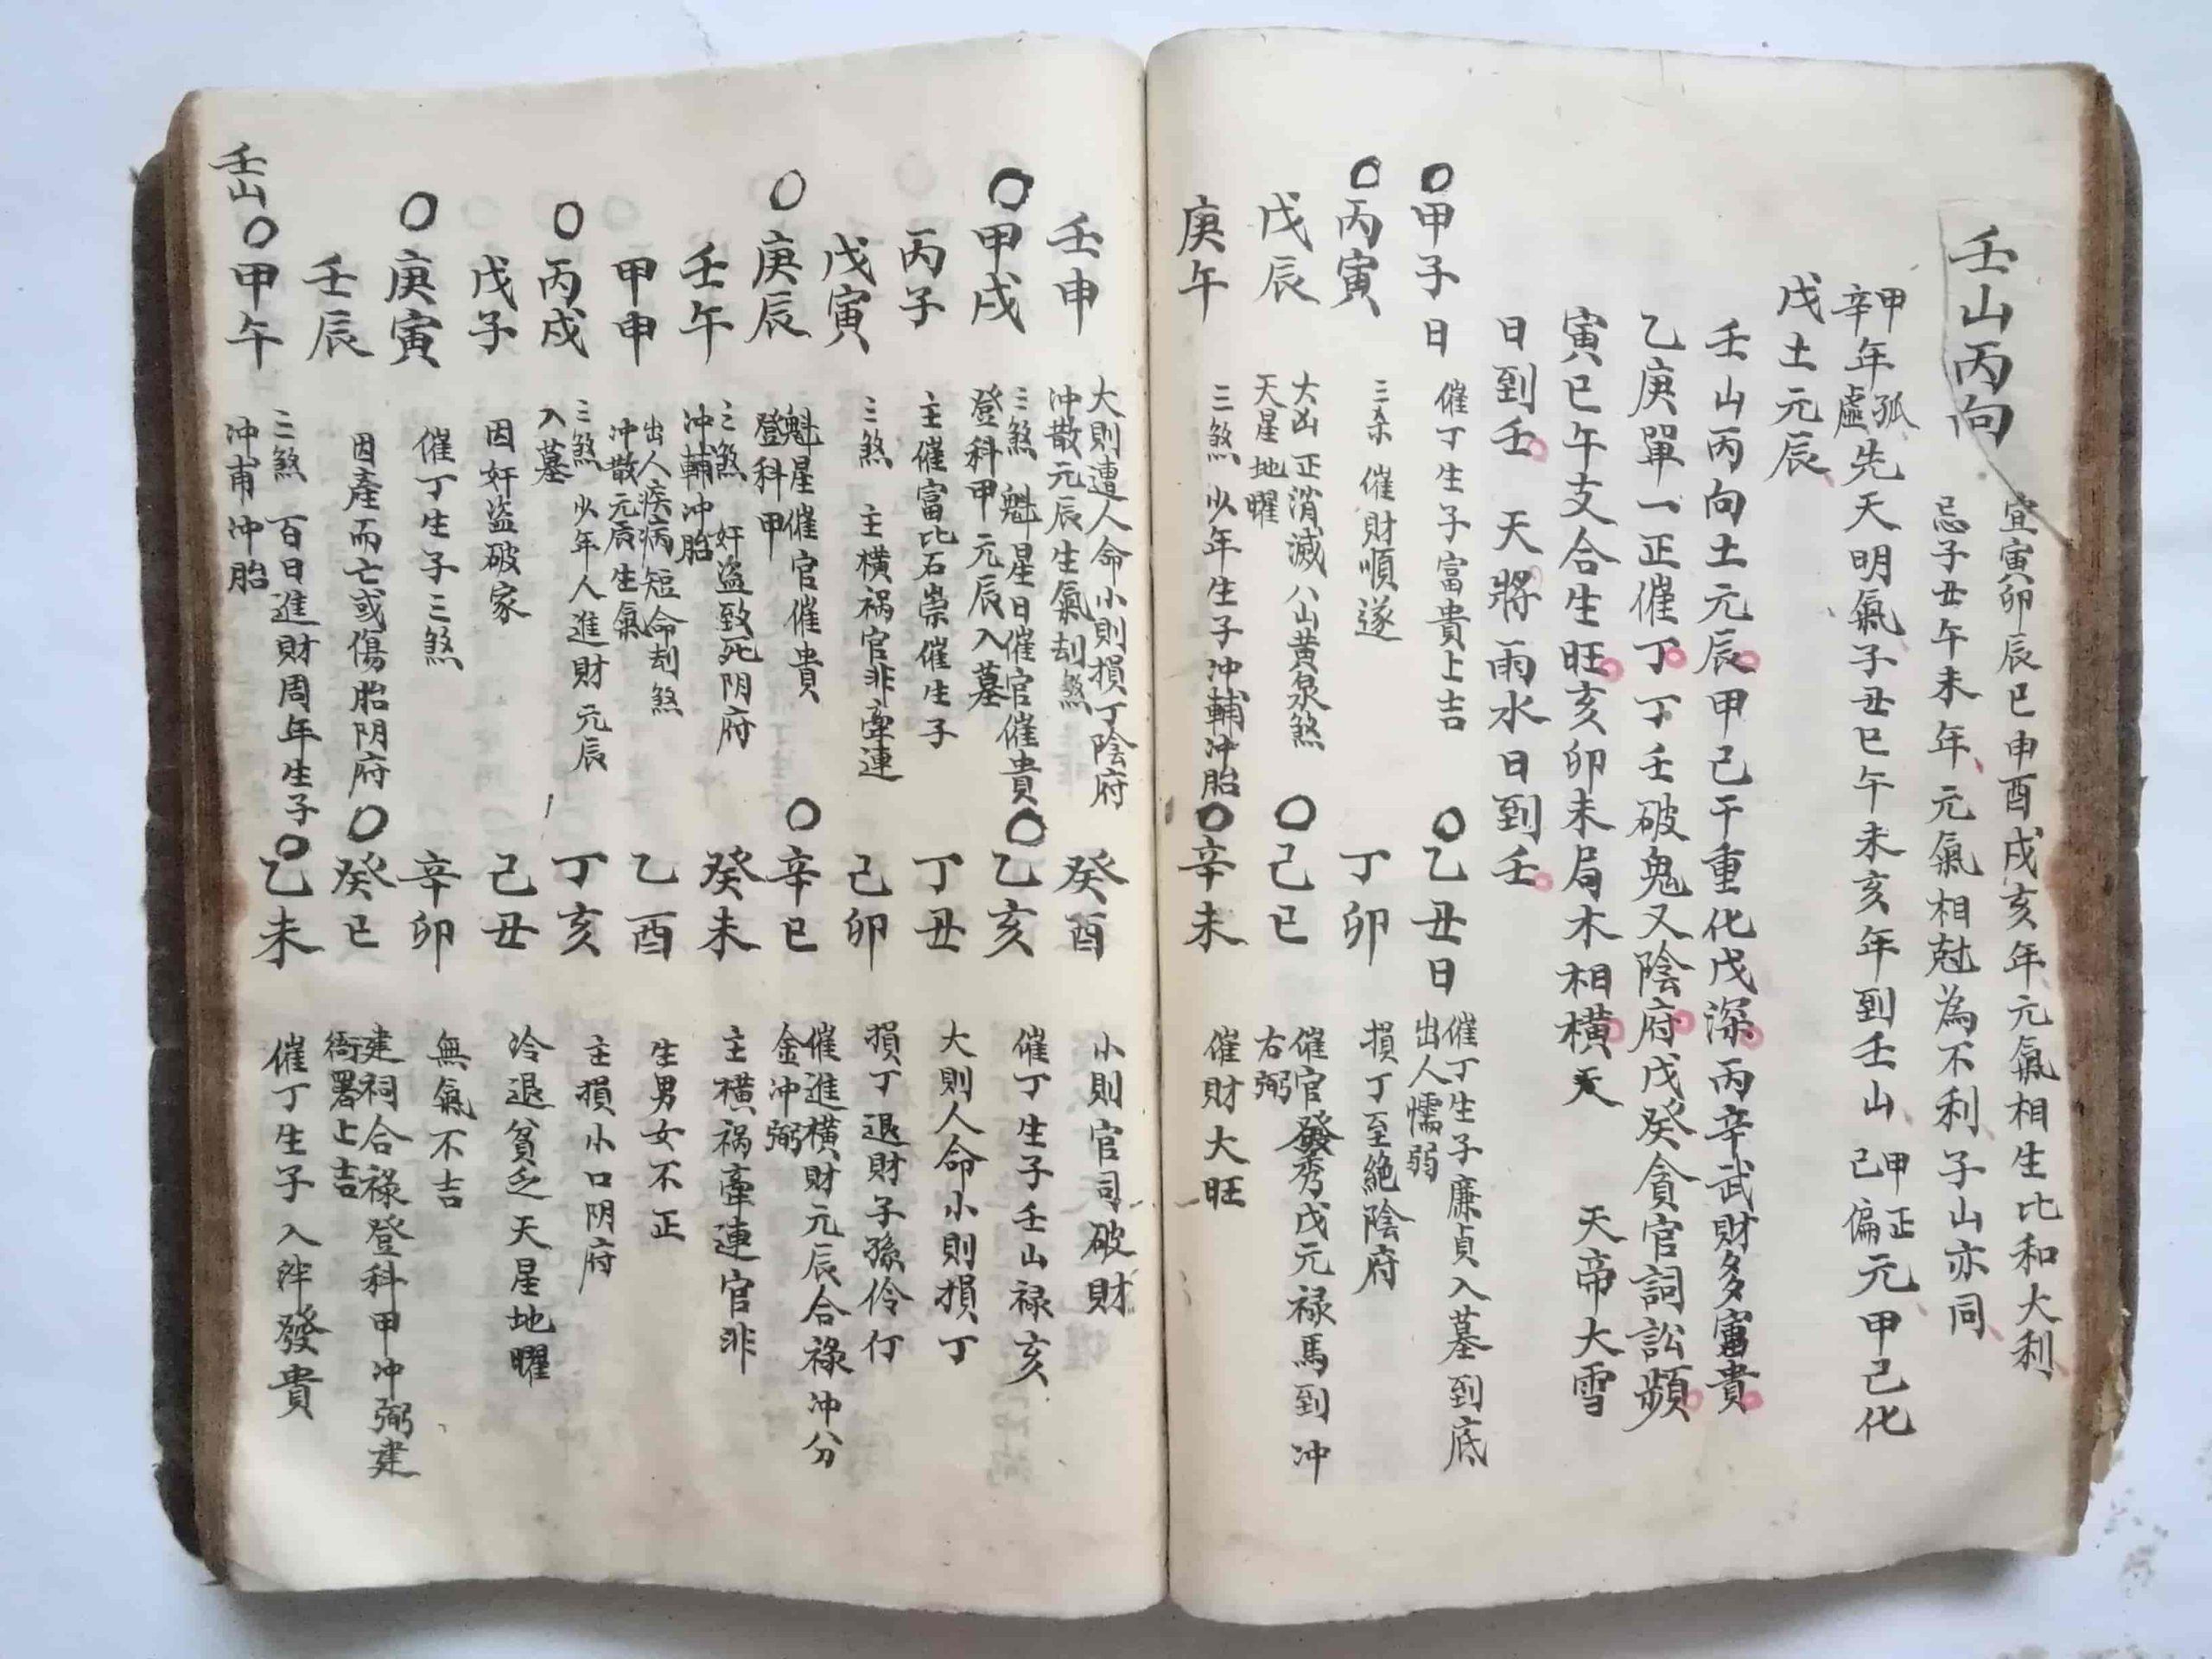 壬山丙向
宜寅卯辰巳申酉戌亥年元氣相生比和大利
忌子丑午未年元氣相尅為不利子山亦同
甲辛年孤虛先天明氣子丑巳午未亥年到壬山甲正己偏元甲己化
戊土元辰
壬山丙向土元辰甲己干重化戊深丙辛武財多富貴
乙庚單一正催丁丁壬破鬼又陰府戊癸貪官詞訟頻
寅巳午支合生旺亥卯未局木相橫天 天帝大雪
日到壬 天將雨水日到壬
甲子日 催丁生子富貴上吉
乙丑日 催丁生子廉貞入墓到底
出人懦弱
丙寅 三杀 催財順遂
丁卯 損丁至絶陰府
戊辰 大凶正消滅八山黄泉煞
天星地曜
己巳 催官發秀戊元禄馬到冲
右弼
庚午 三煞 少年生子冲輔冲胎
辛未 催財大旺
壬申 大則遭人命小則損丁陰府
冲散元辰生氣刮煞
癸酉 小則官司破財
甲戌 三煞 魁星日催官催貴
登科甲元辰入墓
乙亥 催丁生子壬山禄亥
丙子 主催富比石崇催生子
丁丑 大則人命小則損丁
戊寅 三煞 主橫禍官非牽連
己卯 損丁退財子孫伶仃
庚辰 魁星催官催貴
登科甲
辛巳 催進橫財元辰合祿冲分
金冲弼
壬午 三煞 奸盗致死阴府
冲輔冲胎
癸未 主橫禍牽連官非
甲申 出人疾病短命刮煞
冲散元辰生氣
乙酉 生男女不正
丙戌 三煞 少年人進財元辰
入墓
丁亥 主損小口阴府
戊子 因奸盗破家
己丑 冷退貧乏天星地曜
庚寅 催丁生子三煞
辛卯 無氣不吉
壬辰 因産而亡或傷胎阴府
癸巳 建祠合祿登科甲冲弼建
衙署上吉
壬山
甲午 三煞 百日進財周年生子
冲甫冲胎
乙未 催丁生子入泮發貴